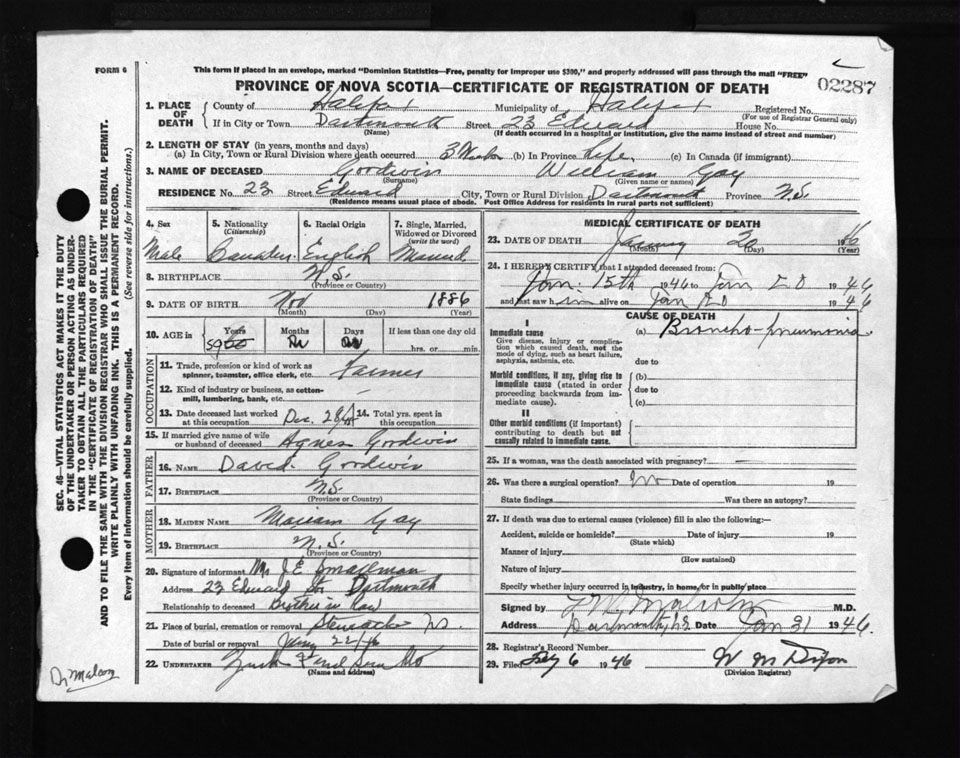 FORM 6
This form if placed in an envelope, marked "Dominion Statistics—Free, penalty for improper use $300," and properly addressed will pass through the mail "FREE"
02287
PROVINCE OF NOVA SCOTIA—CERTIFICATE OF REGISTRATION OF DEATH
1. PLACE OF DEATH
County of Halifax Municipality of Halifax Registered No.
(For use of Registrar General only)
If in City or Town Dartmouth Street 23 Edward House No.
(Name) (If death occurred in a hospital or institution, give the name instead of street and number)
2. LENGTH OF STAY (in years, months and days)
(a) In City, Town or Rural Division where death occurred 3 Weeks (b) In Province Life (c) In Canada (if immigrant)
3. NAME OF DECEASED Goodwin William Gay
(Surname) (Given name or names)
RESIDENCE No. 23 Street Edward City, Town or Rural Division Dartmouth Province N.S.
(Residence means usual place of abode. Post Office Address for residents in rural parts not sufficient)
4. Sex
5. Nationality (Citizenship)
6. Racial Origin
7. Single, Married, Widowed or Divorced (write the word)
Male Canadian English Married
8. BIRTHPLACE N.S.
(Province or Country)
9. DATE OF BIRTH Nov 1886
(Month) (Day) (Year)
10. AGE in
Years Months Days If less than one day old
hrs. or min.
OCCUPATION
11. Trade, profession or kind of work as spinner, teamster, office clerk, etc. Farmer
12. Kind of industry or business, as cotton-mill, lumbering, bank, etc.
13. Date deceased last worked at this occupation Dec. 28
14. Total yrs. spent in this occupation
15. If married give name of wife or husband of deceased Agnes Goodwin
FATHER
16. NAME David Goodwin
17. BIRTHPLACE N.S.
(Province or Country)
MOTHER
18. MAIDEN NAME Mariam Gay
19. BIRTHPLACE N.S.
(Province or Country)
20. Signature of informant Mr J E Smallman
Address 23 Edward St. Dartmouth
Relationship to deceased Brother in Law
21. Place of burial, cremation or removal Stewiacke N.S.
Date of burial or removal 22/46
22. UNDERTAKER
(Name and address)
MEDICAL CERTIFICATE OF DEATH
23. DATE OF DEATH January 20
(Month) (Day)
24. I HEREBY CERTIFY that I attended deceased from:
Jan. 15th 1946 to Jan 20 1946
and last saw him alive on Jan 20 1946
CAUSE OF DEATH
I
Immediate cause
Give disease, injury or complication which caused death, not the mode of dying, such as heart failure, asphyxia, asthenia, etc.
(a) Broncho-pneumonia
due to
Morbid conditions, if any, giving rise to immediate cause (stated in order proceeding backwards from immediate cause).
(b)
due to
(c)
II
Other morbid conditions (if important) contributing to death but not causally related to immediate cause.
25. If a woman, was the death associated with pregnancy?
26. Was there a surgical operation? No Date of operation 19
State findings Was there an autopsy?
27. If death was due to external causes (violence) fill in also the following:—
Accident, suicide or homicide? Date of injury 19
(State which)
Manner of injury
(How sustained)
Nature of injury
Specify whether injury occurred in industry, in home, or in public place
Signed by Malcolm M.D.
Address Dartmouth, N.S. Date Jan 31 1946.
28. Registrar's Record Number
29. Filed 6 1946 W M Dixon
(Division Registrar)
SEC. 46—VITAL STATISTICS ACT MAKES IT THE DUTY
OF THE UNDERTAKER OR PERSON ACTING AS UNDER-
TAKER TO OBTAIN ALL THE PARTICULARS REQUIRED
IN THE "CERTIFICATE OF REGISTRATION OF DEATH"
AND TO FILE THE SAME WITH THE DIVISION REGISTRAR WHO SHALL ISSUE THE BURIAL PERMIT.
WRITE PLAINLY WITH UNFADING INK. THIS IS A PERMANENT RECORD.
Every item of information should be carefully supplied. (See reverse side for instructions.)
Dr Malcom